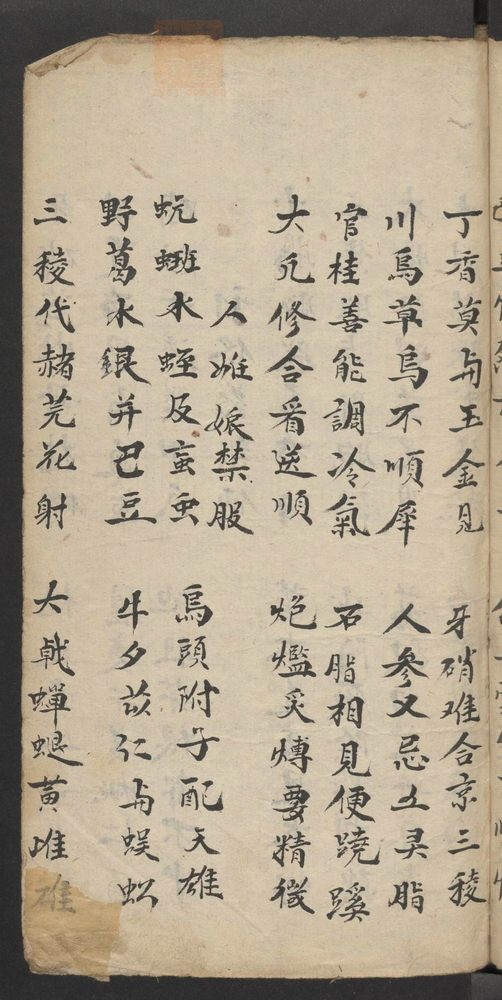 丁香莫与玉金見 牙硝难合京三稜
川烏草烏不順犀 人參又忌五灵脂
官桂善能調冷氣 石脂相見便蹺蹊
大凡修合看送順 炮爁炙煿要精微
人姙娠禁服
蚖蝬水蛭及䖟虫 烏頭附子配天雄
野葛水銀并巴豆 牛夕苡仁与蜈蚣
三稜代赭芫花射 大戟蟬蜕黄唯雄